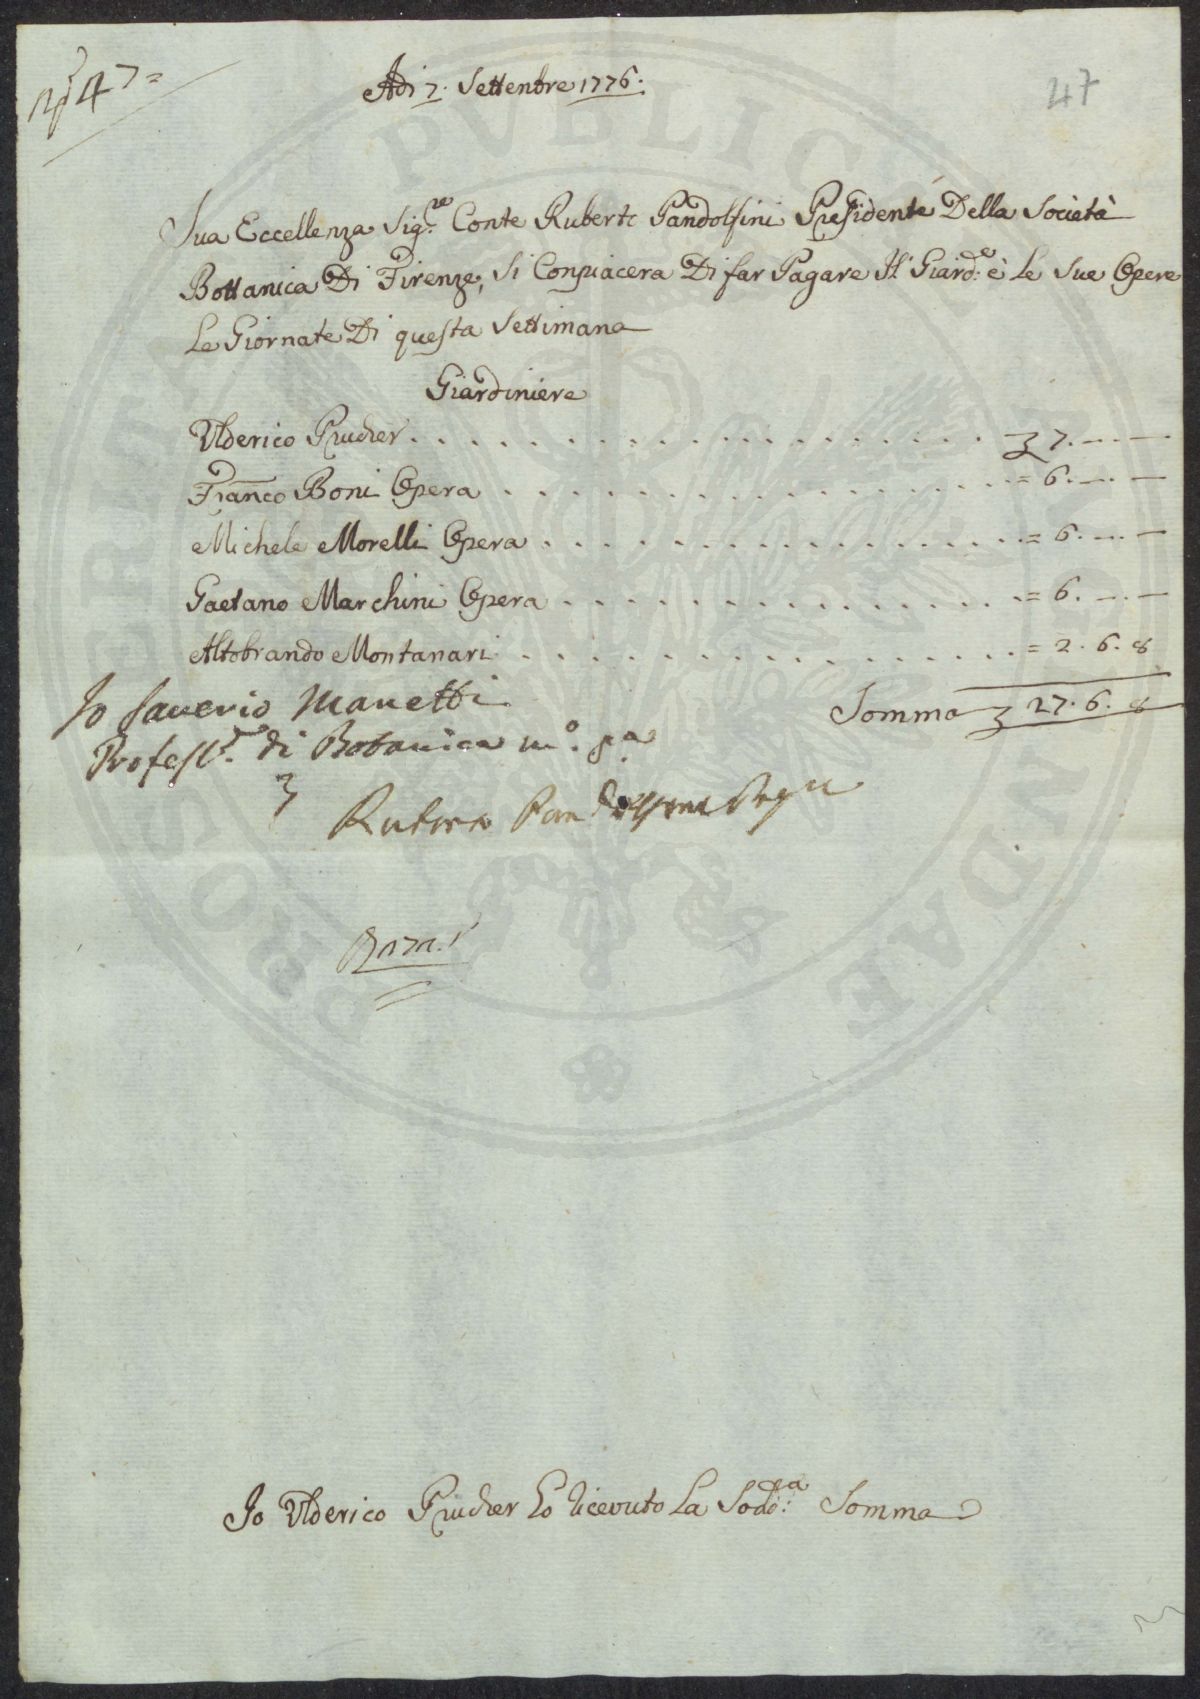 N.º 47=
Adi 7. Settenbre 1776.
47
Sua Eccellenza Sig.re Conte Ruberto Pandolfini Presidente Della Società
Bottanica Di Firenze, Si Conpiacera Di far Pagare Il Giard.e è Le Sue Opere
Le Giornate Di questa Settimana
Giardiniere
Ulderico Prucher . . . . . . . . . . . . . . . £ 7. — —
Franco Boni Opera . . . . . . . . . . . . . . = 6. — —
Michele Morelli Opera . . . . . . . . . . . . . = 6. — —
Gaetano Marchini Opera . . . . . . . . . . . . = 6. — —
Altobrando Montanari . . . . . . . . . . . . . = 2. 6. 8
Somma £ 27. 6. 8
Io Saverio Manetti
Profess.r di Botanica m.o p.a
Ruberto Pandolfini
Io Ulderico Prucher ho ricevuto La Sodd.ta Somma
PROBITATI PVBLICAE